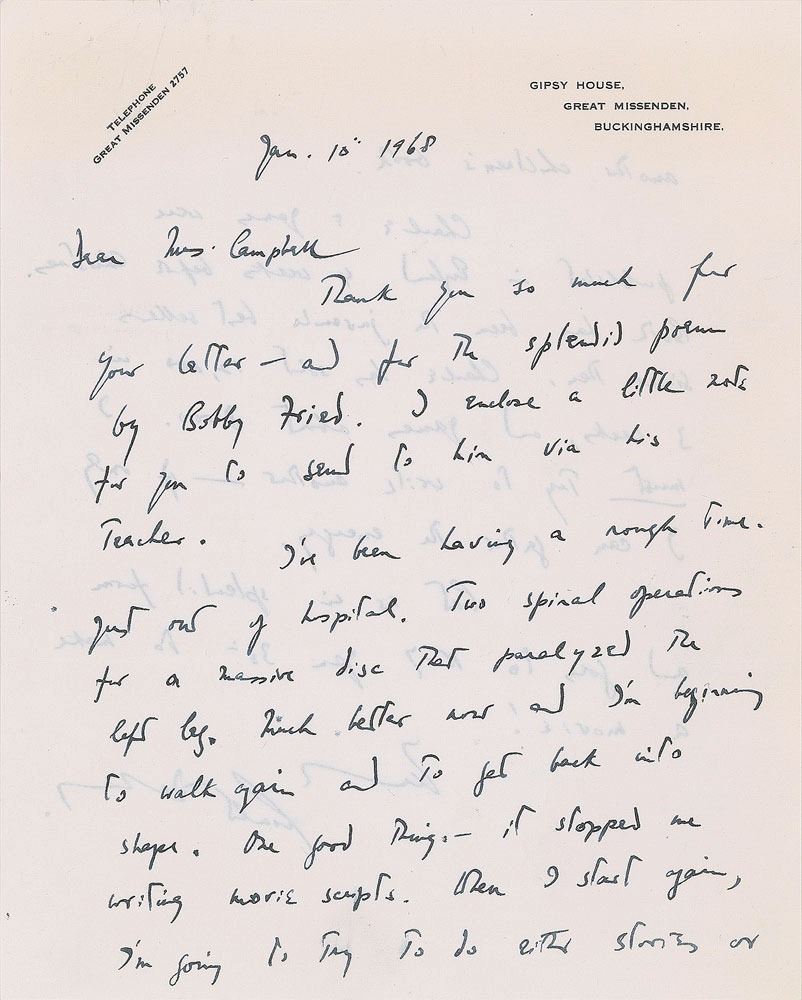 TELEPHONE
GREAT MISSENDEN 2757
GIPSY HOUSE,
GREAT MISSENDEN,
BUCKINGHAMSHIRE.
Jan. 10 1968
Dear Mrs. Campbell
Thank you so much for
your letter — and for the splendid poem
by Bobby Fried. I enclose a little note
for you to send to him via his
Teacher.
I've been having a rough time.
Just out of hospital. Two spinal operations
for a massive disc that paralyzed the
left leg. Much better now and I'm beginning
to walk again and to get back into
shape. One good thing, — it stopped me
writing movie scripts. When I start again,
I'm going to try to do either stories or